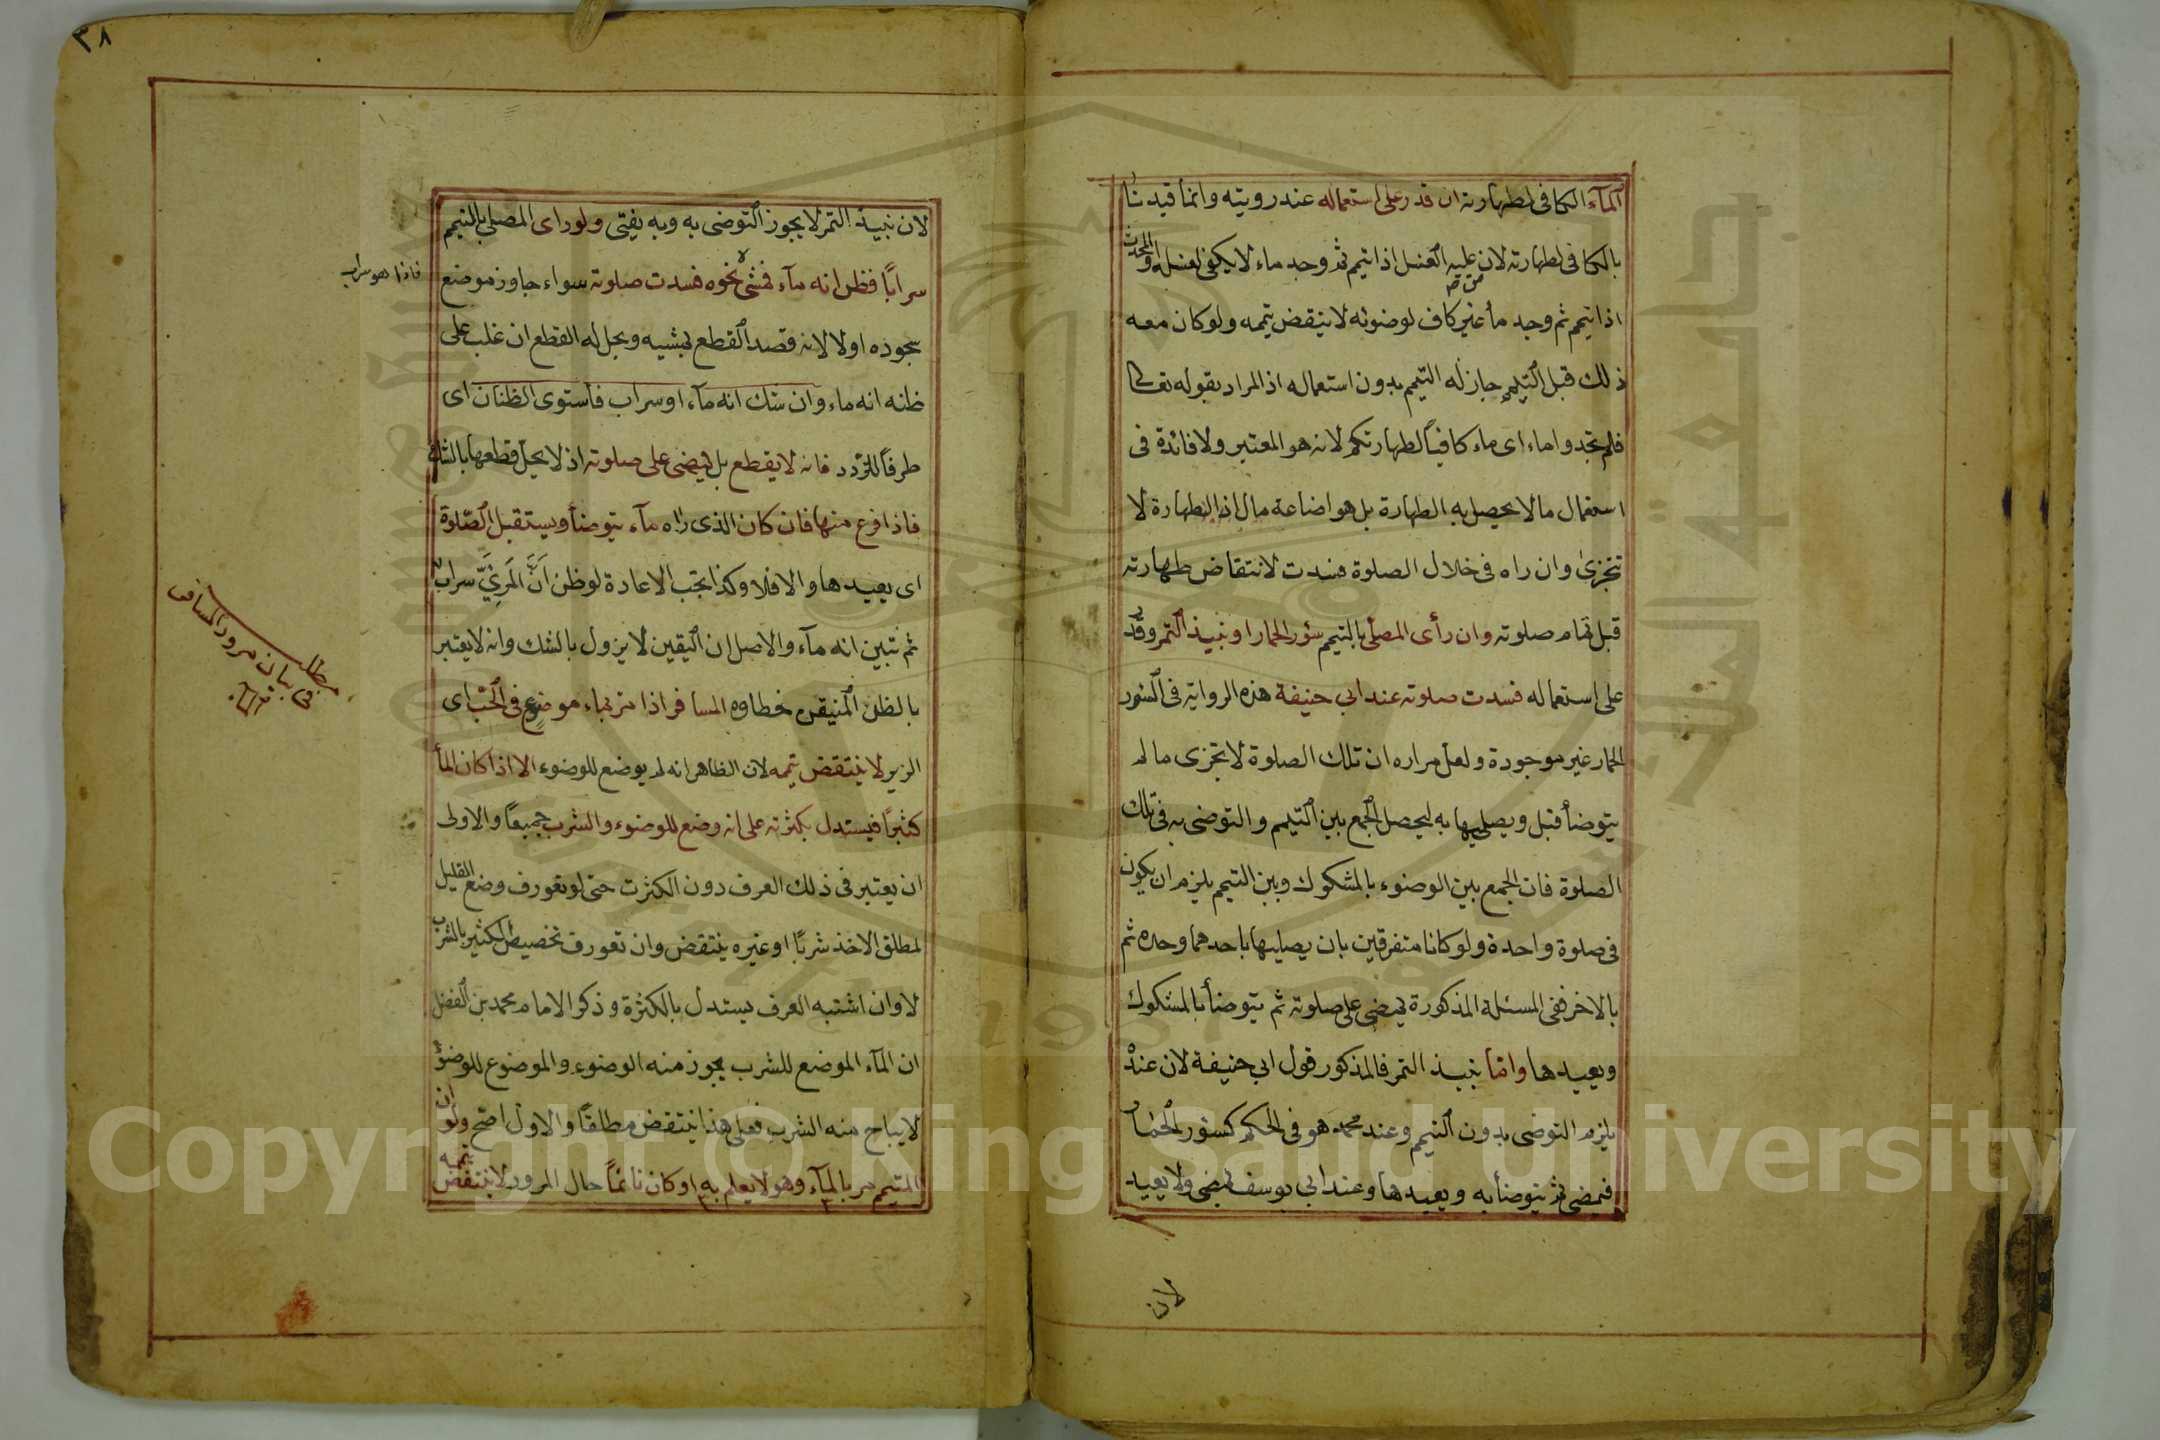 الماء الكافى لطهارته ان قدر على استعماله عند رويته وانما قيدنا
بالكافى لطهارته لان من عليه الغسل اذا تيمم ثم وجد ماء لا يكفى لغسله او المحدث
اذا تيمم ثم وجد ماء غير كاف لوضوئه لا ينتقض تيممه ولو كان معه
ذلك قبل التيمم جاز له التيمم بدون استعماله اذ المراد بقوله تعالى
فلم تجدوا ماء اى ماء كافيا لطهارتكم لانه هو المعتبر ولا فائدة فى
استعمال ما لا يحصل به الطهارة بل هو اضاعة مال اذ الطهارة لا
تتجزى وان راه فى خلال الصلوة فسدت لانتقاض طهارته
قبل تمام صلوته وان رأى المصلى بالتيمم سؤر الحمار او نبيذ التمر وقدر
على استعماله فسدت صلوته عند ابي حنيفة هذه الرواية فى السؤر
الحمار غير موجودة ولعل مراره ان تلك الصلوة لا تجزى ما لم
يتوضأ قبل ويصليها به ليحصل الجمع بين التيمم والتوضى به فى تلك
الصلوة فان الجمع بين الوضوء بالمشكوك وبين التيمم يلزم ان يكون
فى صلوة واحدة ولو كانا متفرقين بان يصليها باحدهما وحده ثم
بالاخر ففى المسئلة المذكورة يمضى على صلوته ثم يتوضأ بالمشكوك
ويعيدها واما نبيذ التمر فالمذكور قول ابي حنيفة لان عنده
يلزم التوضى بدون التيمم وعند محمد هو فى الحكم كسؤر الحمار
فيمضى ثم يتوضأ به ويعيدها وعند ابي يوسف يمضى ولا يعيد
لان
٣٨
لان نبيذ التمر لا يجوز التوضى به وبه يفتى ولو راى المصلى بالتيمم
سرابا فظن انه ماء فمشى نحوه فسدت صلوته سواء جاوز موضع
فاذا هو سراب
سجوده اولا لانه قصد القطع بمشيه ويحل له القطع ان غلب على
ظنه انه ماء وان شك انه ماء او سراب فاستوى الظنان اى
طرفا للتردد فانه لا يقطع بل يمضى على صلوته اذ لا يحل قطعها بالشك
فاذا فرع منها فان كان الذى راه ماء يتوضأ ويستقبل الصلوة
اى يعيدها والا فلا وكذا يجب الاعادة لو ظن ان المرئي سراب
ثم تبين انه ماء والاصل ان اليقين لا يزول بالشك وانه لا يعتبر
بالظن المتيقن خطاوه المسافر اذا مر بماء موضوع فى الحب اى
الزير لا ينتقض تيممه لان الظاهر انه لم يوضع للوضوء الا اذا كان الماء
كثيرا فيستدل بكثرته على انه وضع للوضوء والشرب جميعا والاولى
ان يعتبر فى ذلك العرف دون الكثرت حتى لو تعورف وضع القليل
لمطلق الاخذ شربا او غيره ينتقض وان تعورف تخصيص الكثير بالشرب
لا وان اشتبه العرف يستدل بالكثرة وذكر الامام محمد بن الفضل
ان الماء الموضع للشرب يجوز منه الوضوء والموضوع للوضوء
لا يباح منه الشرب فعلى هذا ينتقض مطلقا والاول اصح ولو ان
المتيمم مر بالماء وهو لا يعلم به او كان نائما حال المرور لا ينتقض تيممه
مطلب
فى بيان مرور المسافر
Copyright © King Saud University
1957